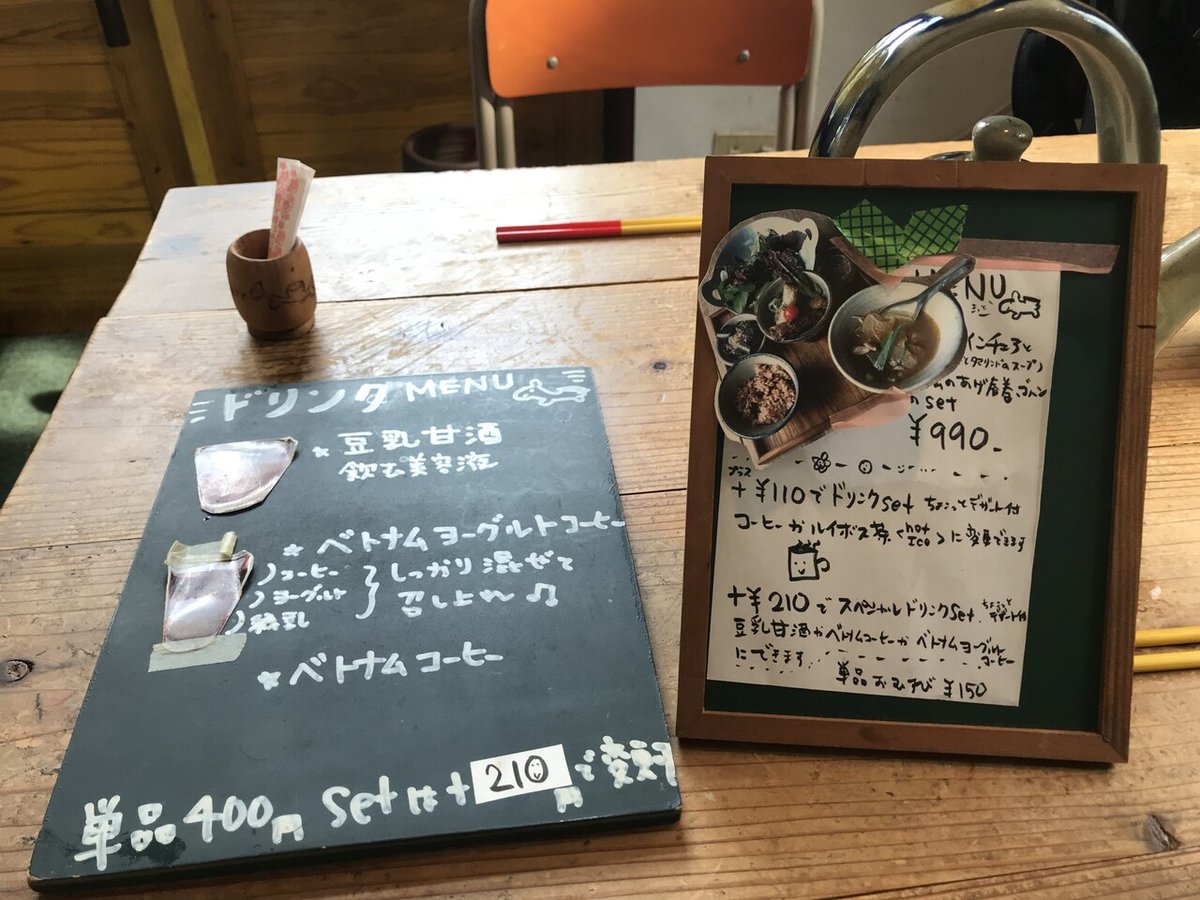 ドリンク MENU
豆乳甘酒
飲む美容液
ベトナムヨーグルトコーヒー
コーヒー
ヨーグルト
練乳
しっかり混ぜて
召し上れ♫
ベトナムコーヒー
単品400円 setは+210円で変更
MENU
set
¥990-
プラス
+¥110でドリンクset ちょこっとデザート付
コーヒーかルイボス茶<hot ice>に変更できます
+¥210でスペシャルドリンクset. ちょこっとデザート付
豆乳甘酒かベトナムコーヒーかベトナムヨーグルトコーヒー
にできます.
単品おむすび ¥150